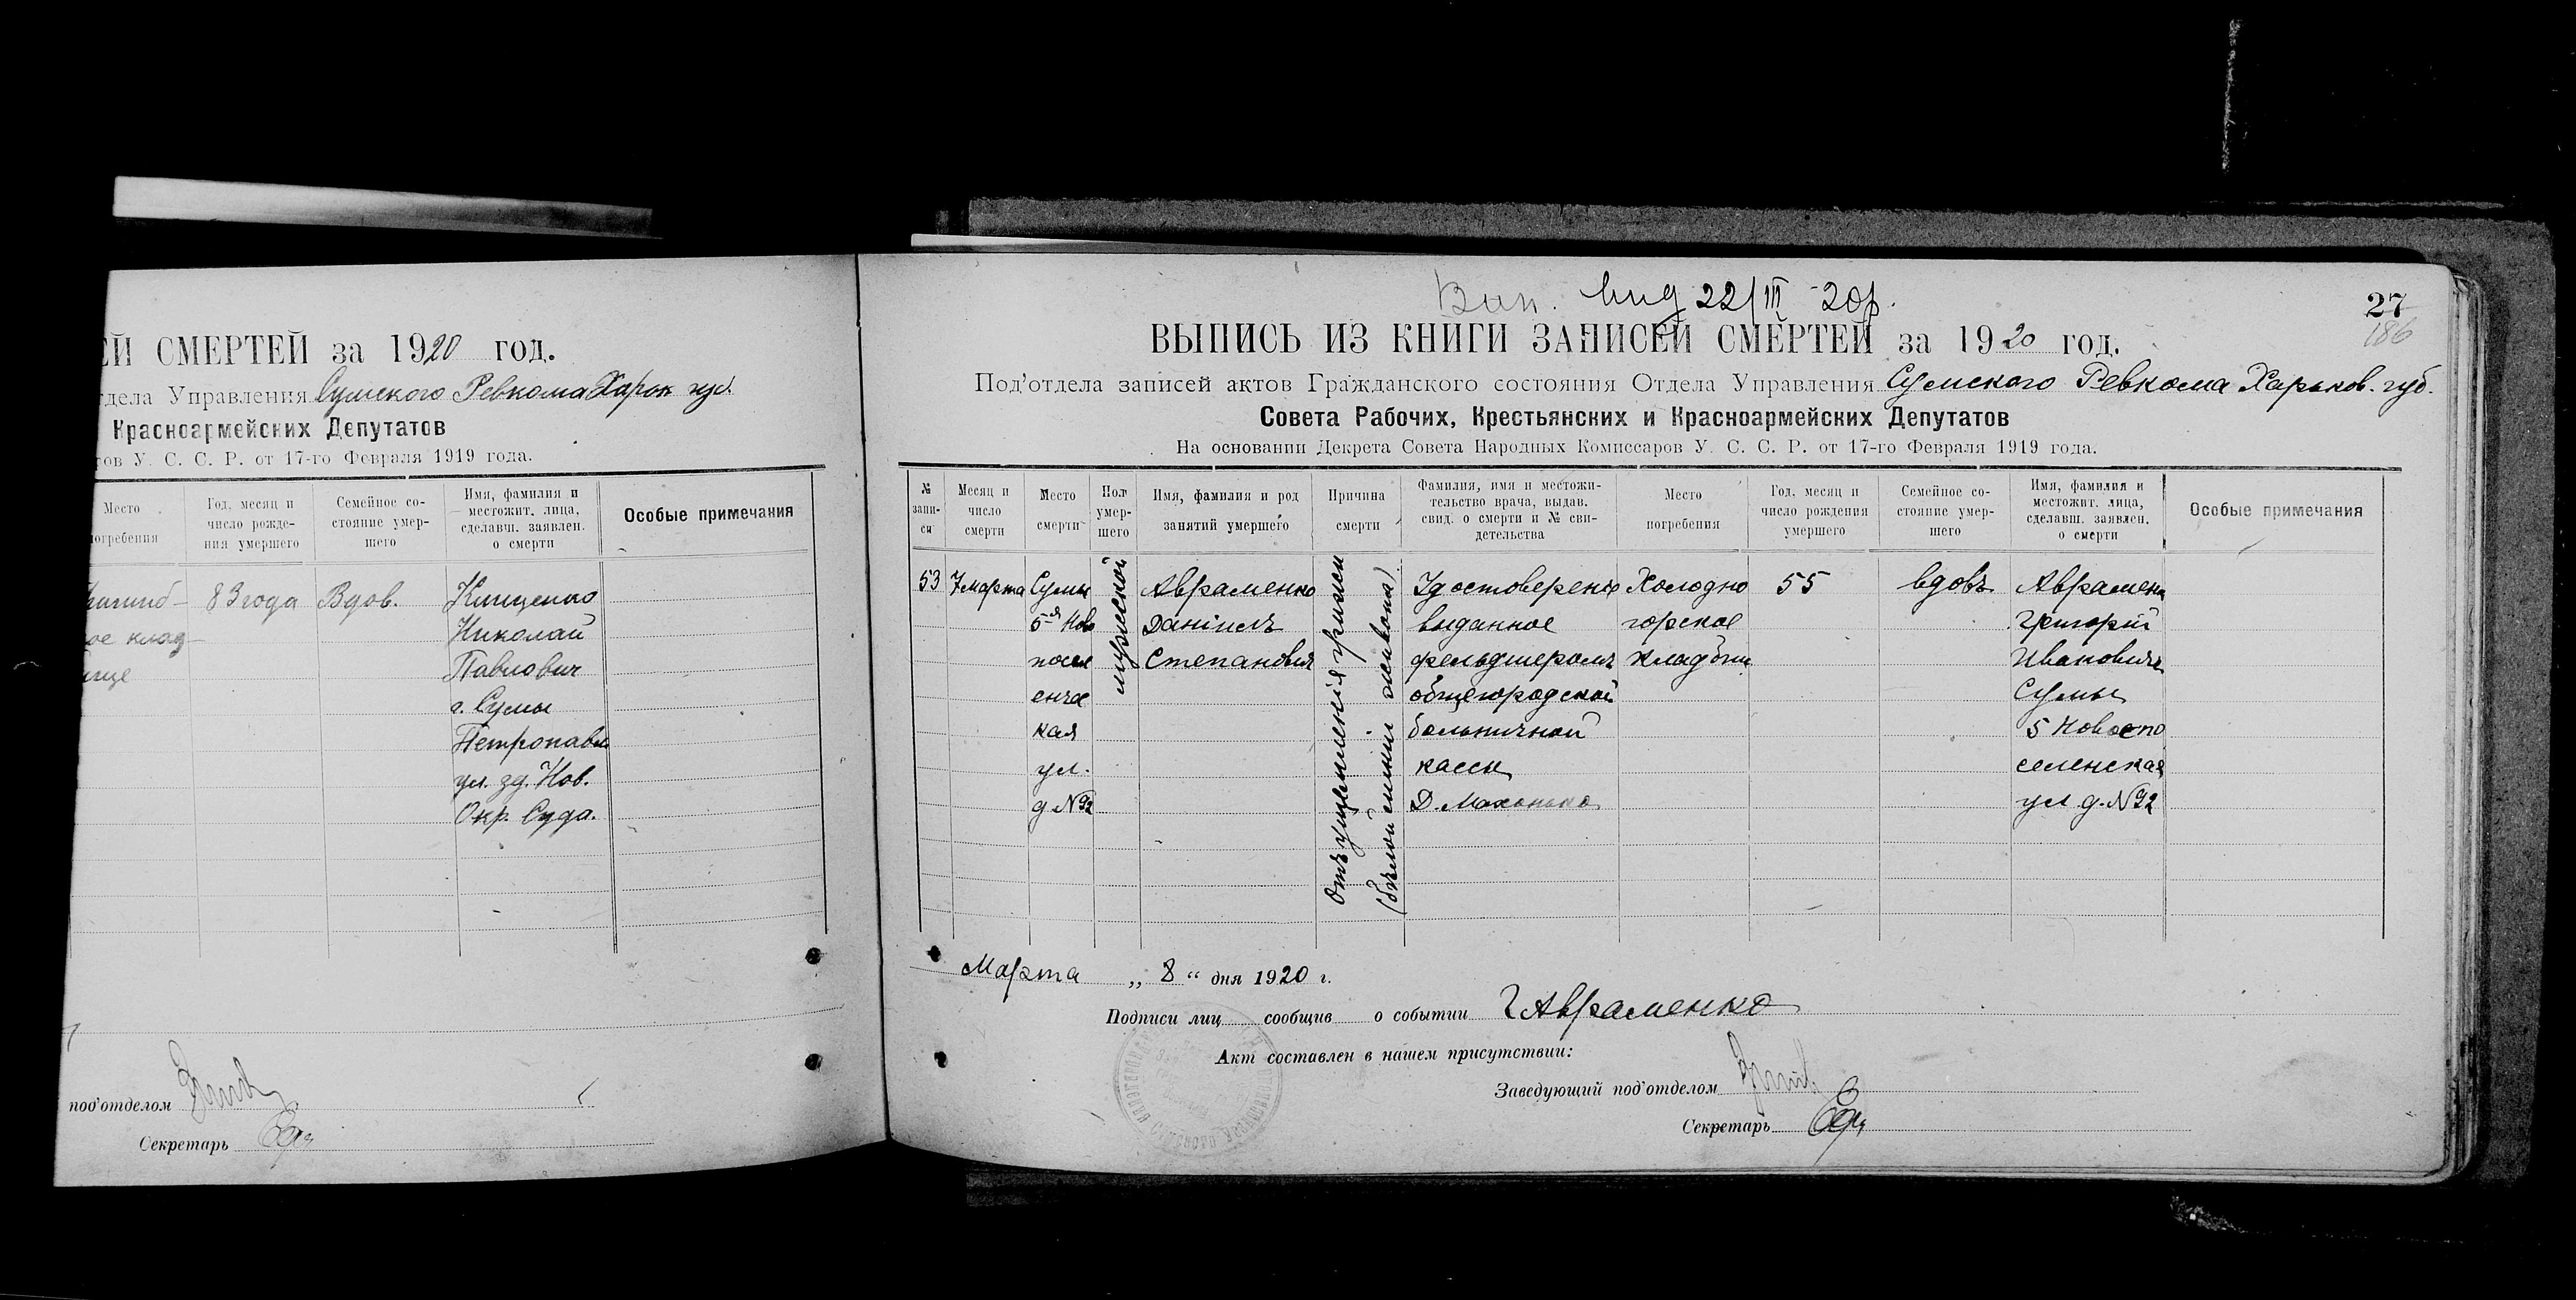 ЕЙ СМЕРТЕЙ за 1920 год.
тдела Управления Сумского Ревкома Харьк губ.
Красноармейских Депутатов
тов У. С. С. Р. от 17-го Февраля 1919 года.
Место погребения
Год, месяц и число рожде-ния умершего
Семейное со-стояние умер-шего
Имя, фамилия и местожит. лица, сделавш. заявлен. о смерти
Особые примечания
83 года Вдов.
ое клад-
ище
Николай
Павлович
г. Сумы
Петропавл
ул. зд. Нов.
Окр. Суда.
под'отделом
Секретарь
22/III - 20 р.
27
186
ВЫПИСЬ ИЗ КНИГИ ЗАПИСЕЙ СМЕРТЕЙ за 1920 год.
Под'отдела записей актов Гражданского состояния Отдела Управления Сумского Ревкома Харьков. губ.
Совета Рабочих, Крестьянских и Красноармейских Депутатов
На основании Декрета Совета Народных Комиссаров У. С. С. Р. от 17-го Февраля 1919 года.
№ запи-си
Месяц и число смерти
Место смерти
Пол умер-шего
Имя, фамилия и род занятий умершего
Причина смерти
Фамилия, имя и местожи-тельство врача, выдав. свид. о смерти и № сви-детельства
Место погребения
Год, месяц и число рождения умершего
Семейное со-стояние умер-шего
Имя, фамилия и местожит. лица, сделавш. заявлен. о смерти
Особые примечания
53
7 марта
Сумы
5-я Ново
посел
енче
кая
ул.
д №92
мужской
Авраменко
Даниилъ
Степановичъ
Отъ ущемления грыжи
Удостоверение
выданное
фельдшеромъ
общегородской
больничной
кассы
Д. Махонько
Холодно
горское
кладбищ
55
вдовъ
Авраменк
Григорій
Ивановичъ
Сумы
5 Новопо
селенская
ул д. №92
Марта „ 8 “ дня 1920 г.
Подписи лиц сообщив о событии Г Авраменко
Акт составлен в нашем присутствии:
Заведующий под'отделом
Секретарь